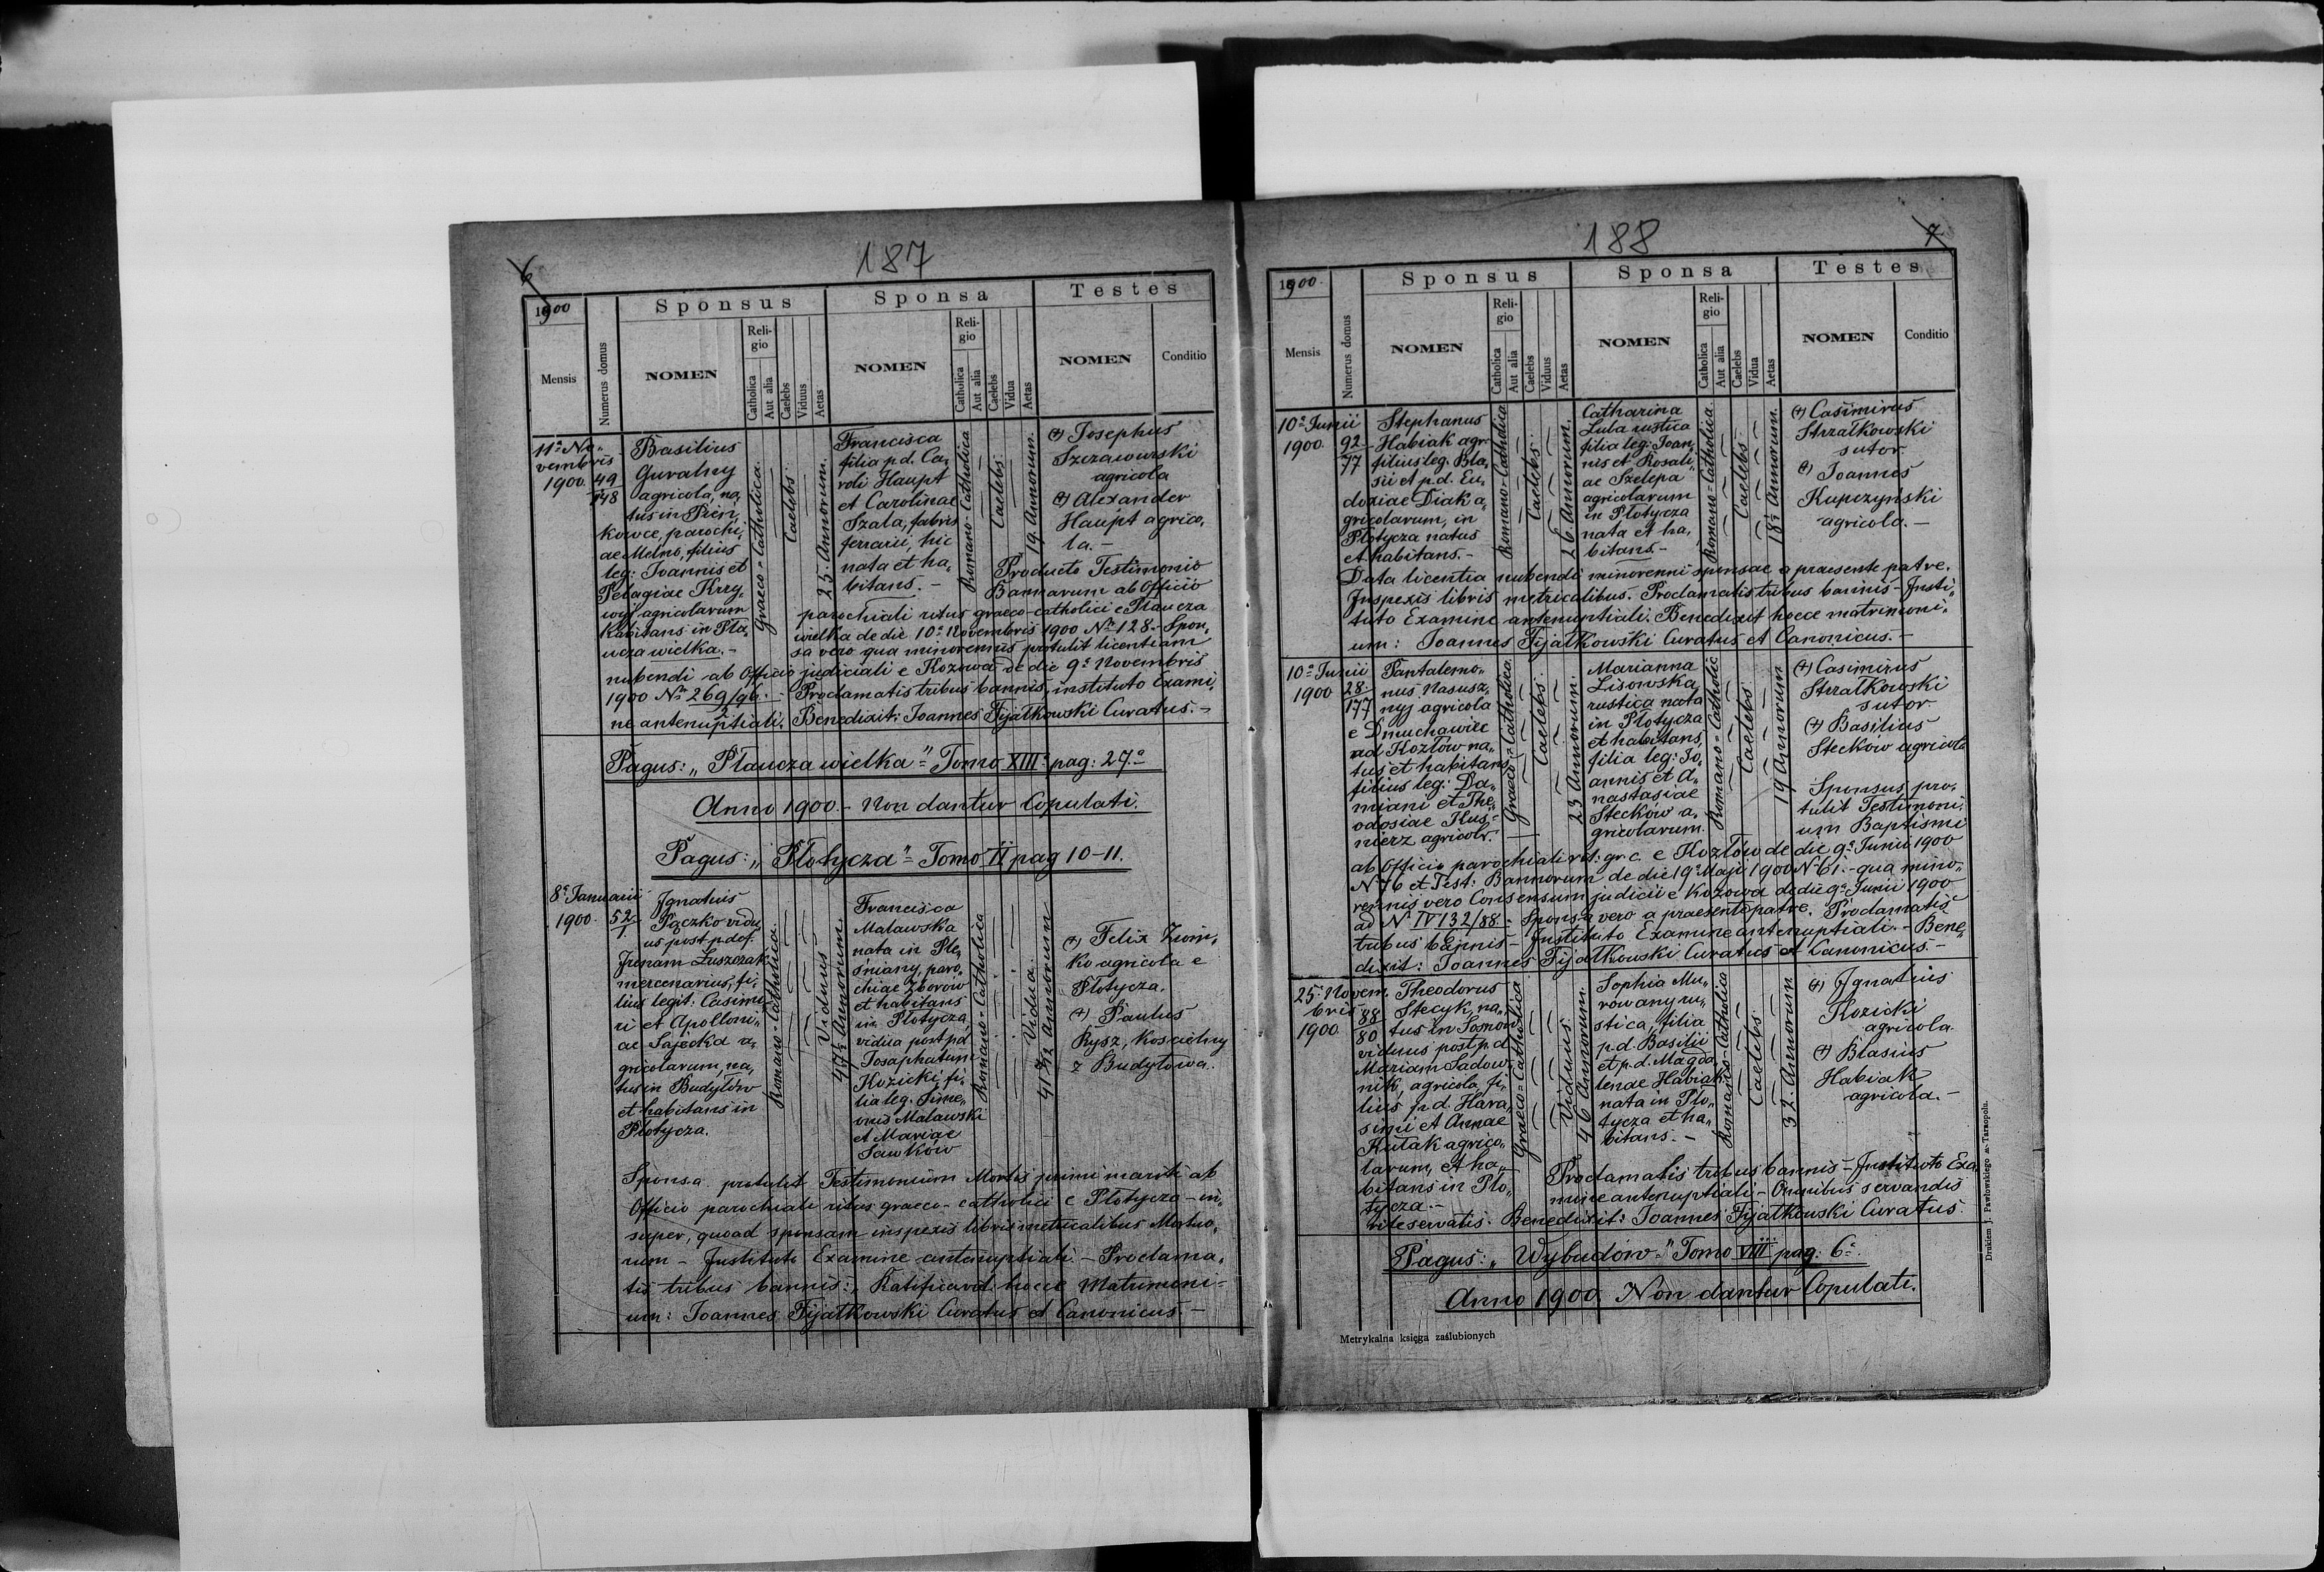 187
6
1900
Sponsus
Sponsa
Testes
Mensis
Numerus domus
NOMEN
Religio
Catholica
Aut alia
Caelebs
Viduus
Aetas
NOMEN
Religio
Catholica
Aut alia
Caelebs
Vidua
Aetas
NOMEN
Conditio
11ª No„
vembris
1900.
49
148
Basilius
Guralny
agricola, na„
tus in
kowce, parochi„
ae filius
leg: Joannis et
Pelagiae Kry„
wyj agricolarum
habitans in Pła„
ucza wielka.-
Graeco-Catholica.
Caelebs.
25. Annorum.
Francisca
filia p.d. Ca„
roli Haupt
et Carolinae
Szala, fabris
ferrarii, hic
nata et ha„
bitans.-
Romano-Catholica
Caelebs.
19. Annorum.
(+) Josephus
Szczawurski
agricola
(+) Alexander
Haupt agrico„
la.-
Producto Testimonio
Bannorum ab Officio
parochiali ritus graeco-catholici e Płaucza
wielka de die 10ª Novembris 1900 Nº 128.- Spon„
sa vero qua minorennis protulit licentiam
nubendi ab Officio judiciali e Kozowa de die 9ª Novembris
1900 Nº 269/96.- Proclamatis tribus bannis, instituto Exami„
2
ne antenuptiali. Benedixit: Joannes Fijałkowski Curatus.-
Pagus: „Płaucza wielka" Tomo XIII pag: 27.
Anno 1900.- Non dantur Copulati.
Pagus: „Płotycza" = Tomo II pag 10-11.
8ª Januarii
1900.
52
1.
Ignatius
Pączko vidu„
us post p.def.
Irenam Łuszczak
mercenarius, fi„
lius legit. Casimi„
ri et Apolloni„
ae Sajecka a„
gricolarum, na„
tus in Budyłów
et habitans in
Płotycza.
Romano-Catholica.
Viduus
47½ Annorum.
Francisca
Malawska
nata in Ple„
śniany, paro„
chiae Zborów
et habitans
in Płotycza,
vidua post pd
Josaphatum
Kozicki, fi„
lia leg. Sime„
onis Malawski
et Mariae
Sawków
Romano-Catholica
Vidua.
41 7/12 Annorum
(+) Felix
ko agricola e
Płotycza.
(+) Paulus
Rysz, Kościelny
z Budyłowa.
Sponsa protulit Testimonium Mortis primi mariti ab
Officio parochiali ritus graeco-catholici e Płotycza - in„
super, quoad sponsam inspexis libris metricalibus Mortuo„
rum - Instituto Examine antenuptiali - Proclama„
tis tribus bannis: Ratificavit hocce Matrimoni=
um: Joannes Fijałkowski Curatus et Canonicus.-
188
7
1900.
Sponsus
Sponsa
Testes
Mensis
Numerus domus
NOMEN
Religio
Catholica
Aut alia
Caelebs
Viduus
Aetas
NOMEN
Religio
Catholica
Aut alia
Caelebs
Vidua
Aetas
NOMEN
Conditio
10ª Junii
1900.
92
77
Stephanus
Habiak agr.
filius leg. Bla„
sii et p.d. Eu„
doxiae Diak a„
gricolarum, in
Płotycza natus
et habitans.-
Romano-Catholica
Caelebs.
26 Annorum.
Catharina
Luba rustica
filia leg: Joan„
nis et Rosali„
ae Szelepa
agricolarum
in Płotycza
nata et ha„
bitans.-
Romano-Catholica.
Caelebs
18½ Annorum.
(+) Casimirus
Strzałkowski
sutor.
(+) Joannes
Kupczynski
agricola.-
Data licentia nubendi minorenni sponsae a praesente patre.
Inspexis libris metricalibus. Proclamatis tribus bannis - Insti„
tuto Examine antenuptiali. Benedixit hocce matrimoni„
um: Joannes Fijałkowski Curatus et Canonicus.-
10ª Junii
1900
28.
177
Pantalemo„
nus Nasusz„
nyj agricola
e Dmuchawiec
ad Kozłów na„
tus et habitans
filius leg: Da„
miani et The„
odosiae Kus=
nierz agricolr.
Graeco-Catholica.
Caelebs.
23 Annorum.
Marianna
Lisowska
rustica nata
in Płotycza
et habitans,
filia leg: Jo„
annis et A„
nastasiae
Stecków a„
gricolarum.
Romano-Catholic
Caelebs.
19 Annorum
(+) Casimirus
Strzałkowski
sutor
(+) Basilius
Stecków agricola
Sponsus pro„
tulit Testimoni„
um Baptismi
ab Officio parochiali rit: gr. c. e Kozłów de die 9ª Junii 1900
Nº 76 et Test: Bannorum de die 19ª Maji 1900 Nº 61.- qua mino„
rennis vero Consensum judicii e Kozowa de die 9ª Junii 1900
ad Nº IV 132/88 - Sponsa vero a praesente patre. Proclamatis
tribus bannis - Instituto Examine antenuptiali.- Bene„
dixit: Joannes Fijałkowski Curatus et Canonicus.-
25. Novem
bris
1900.
88
80
Theodorus
Stecyk, na„
tus in Sosnów
viduus post p.d
Mariam Sadow„
nik, agricola, fi„
lius p.d. Hara„
simi et Annae
Kułak agrico„
larum, et ha„
bitans in Pło„
tycza.-
Graeco-Catholica
Viduus.
46 Annorum.
Sophia Mu„
rowany ru„
stica, filia
p.d. Basilii
et p.d. Magda„
lenae Habiak
nata in Pło„
tycza et ha„
bitans.-
Romano-Catholica
Caelebs.
32 Annorum
(+) Ignatius
Kozicki
agricola.
(+) Blasius
Habiak
agricola.-
Proclamatis tribus bannis - Instituto Exa„
mine antenuptiali - Omnibus servandis
rite servatis. Benedixit: Joannes Fijałkowski Curatus.
Pagus: „Wybudów" Tomo VIII pag: 6.
Anno 1900. Non dantur Copulati.
Metrykalna księga zaślubionych
Drukiem J. Pawłowskiego w Tarnopolu.